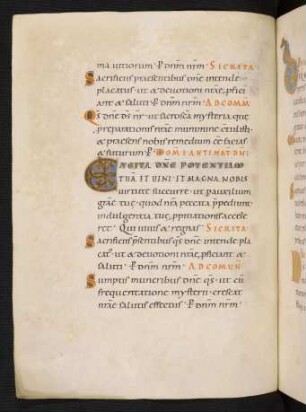 ma uttiorum P dnm nrm · SECRETA
Sacrificiis praesentibus dne intende
placatus · ut & devotioni nrae, pficiant
& saluti P dnm nrm · AD COMM
Qs dne ds nr · ut sacrosca mysteria que
preparationis nrae munimine contulisti
& praesens nobis remedium ee facias
& futurum P · DOM · I · ANTE NAT DNI ·
EXCITA DNE POTENTIAM
TUAM ET VENI · ET MAGNA NOBIS
virtute succurre · ut p auxilium
grae tue · quod nra peccata ppediunt
indulgentia tue, ppitiationis accele
ret · Qui vivis & regnas SECRETA
Sacrificiis psentibus qs dne intende pla
cat · ut & devotioni nrae, pficiant &
saluti · P dnm nrm · AD COMUN
Sumptis muneribus dne qs · ut cu
frequentatione mysterii · crescat
nrae salutis effectus · P dnm nrm ·